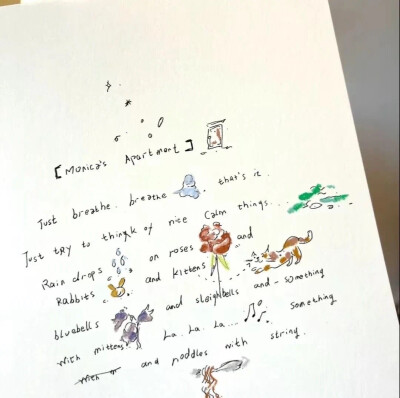 [Monica's Apartment]
Just breathe. breathe that's it.
Just try to think of nice calm things...
Rain drops on roses and
Rabbits and kittens
bluebells and sleighbells and - something
with mittens La. La. La... something
with and noddles with string.